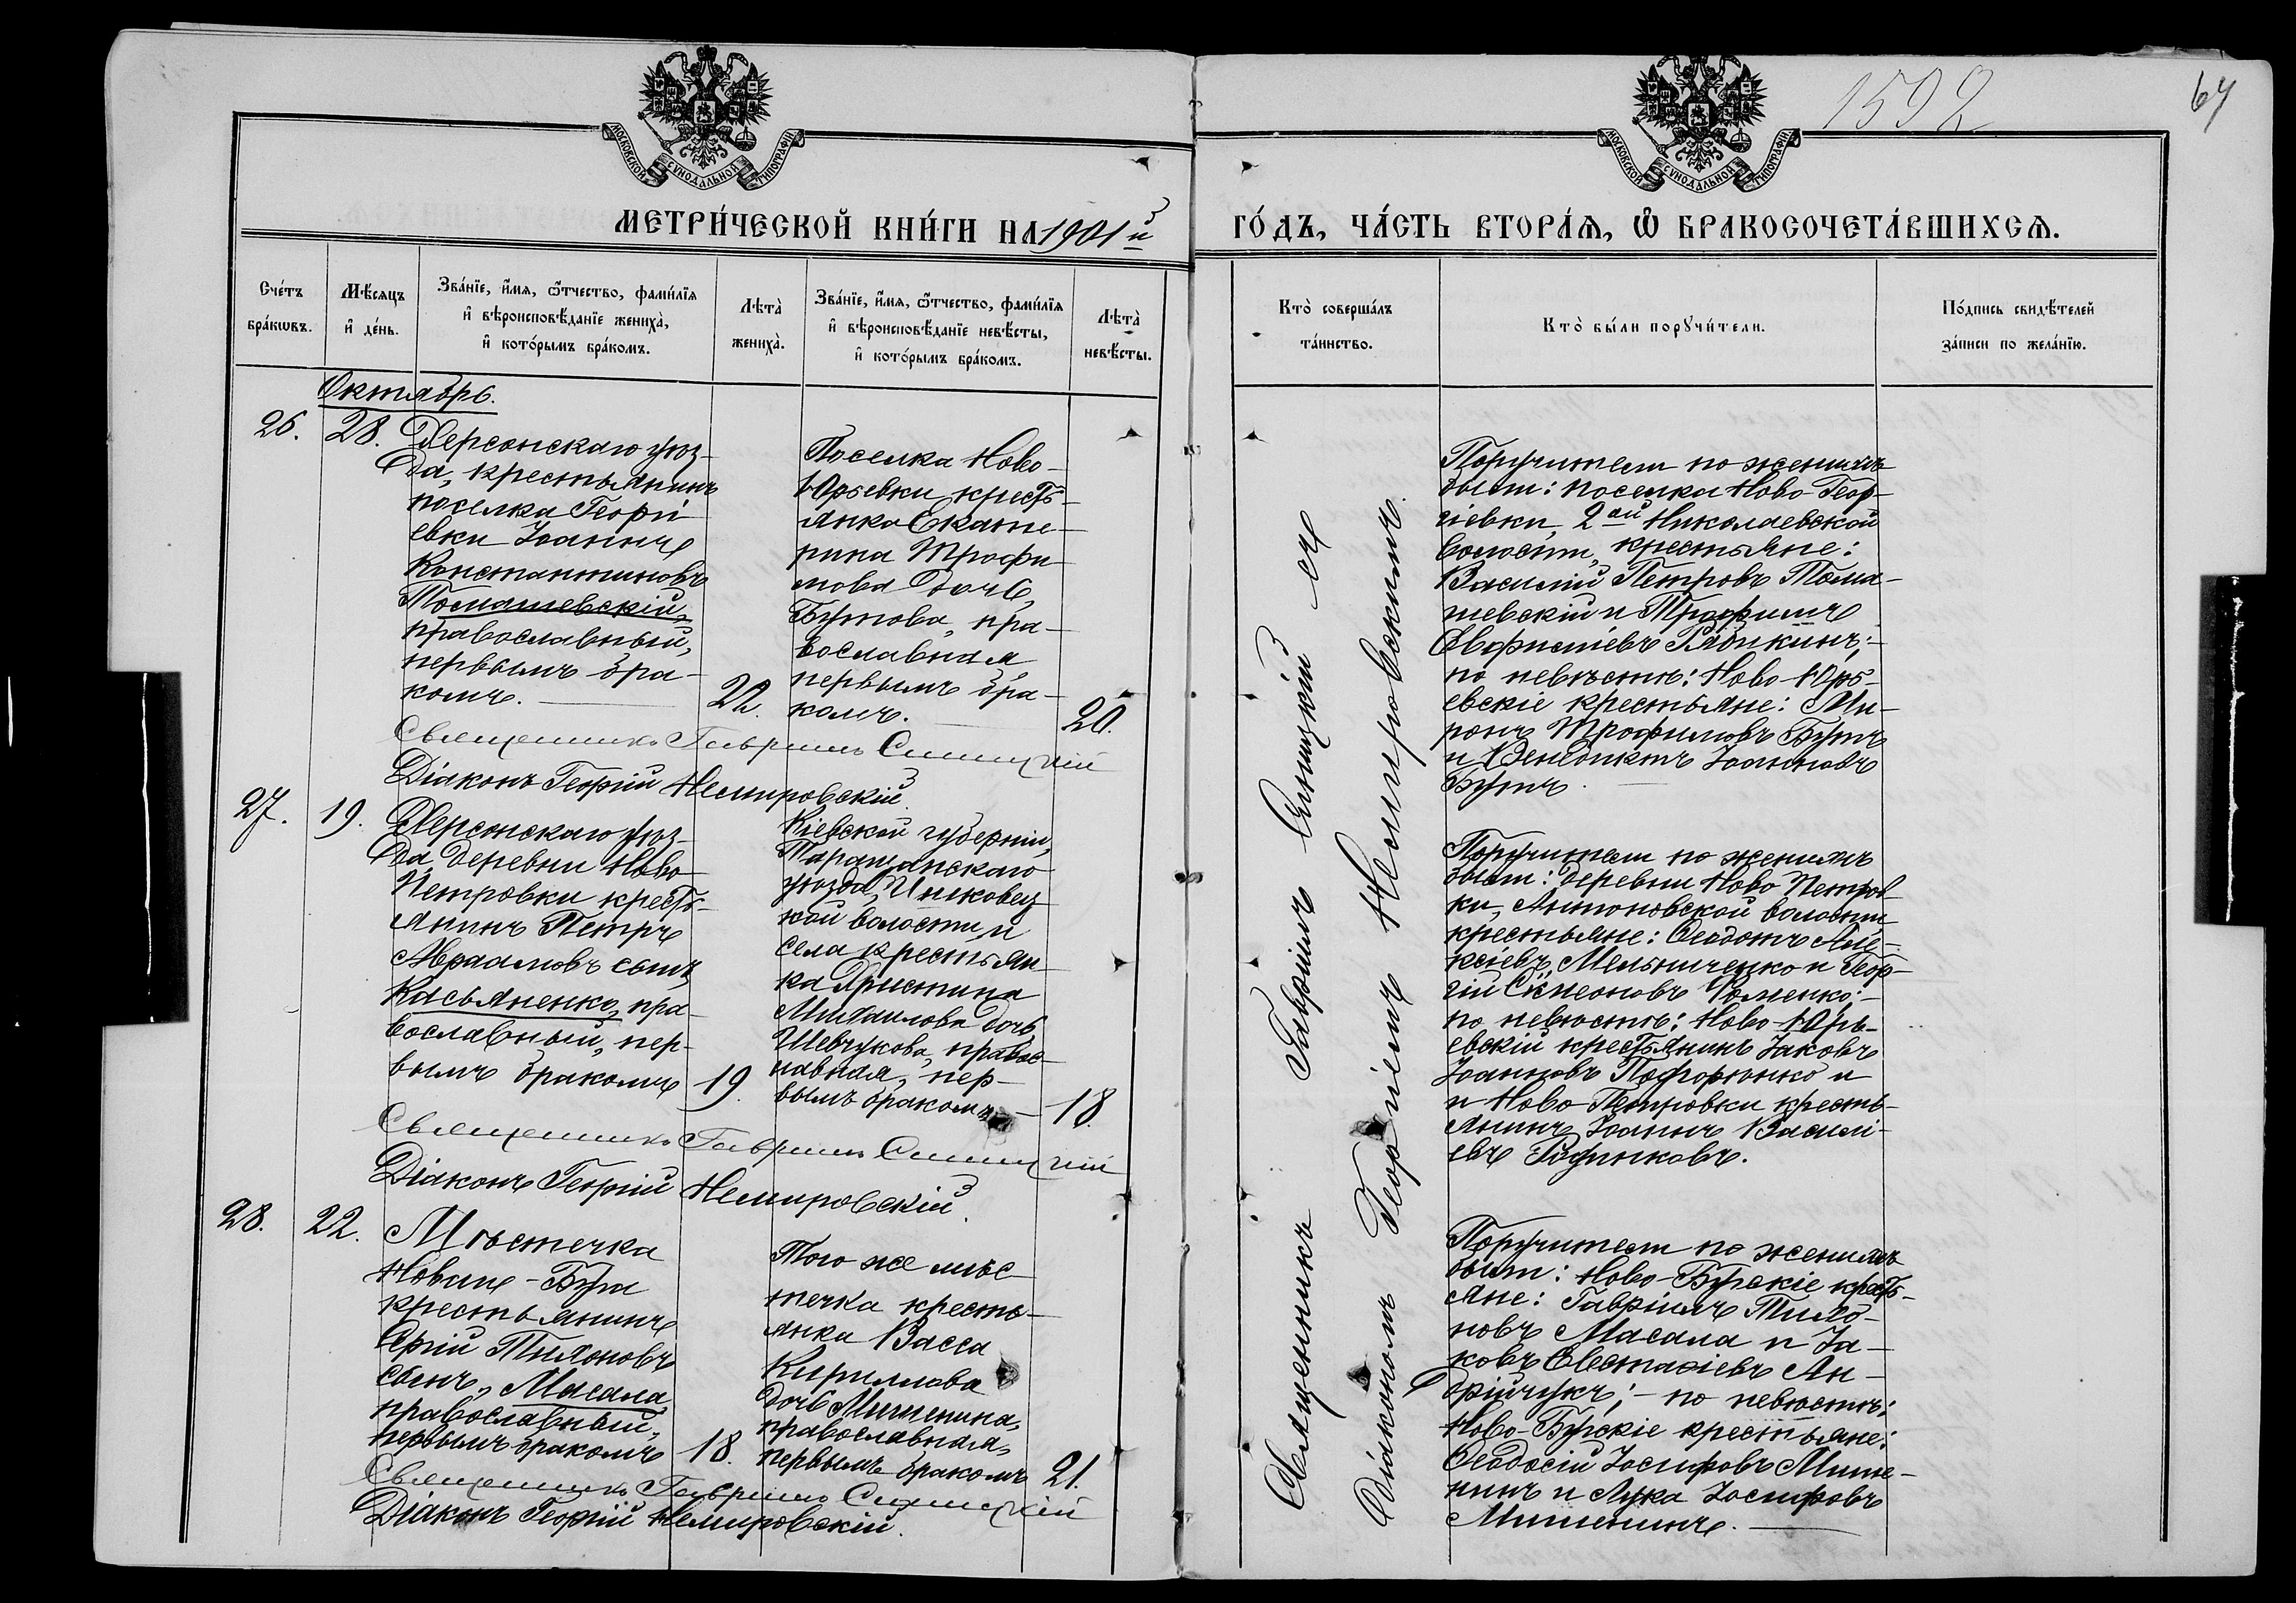 1592
64
МОСКОВСКОЙ СѴНОДАЛЬНОЙ ТИПОГРАФІИ
МОСКОВСКОЙ СѴНОДАЛЬНОЙ ТИПОГРАФІИ
МЕТРИ́ЧЕСКОЙ КНИ́ГИ НА 1901й
ГО́ДЪ, ЧА́СТЬ ВТОРА́Я, Ѡ БРАКОСОЧЕТА́ВШИХСЯ.
Сче́тъ бра́кѡвъ.
Мѣ́сяцъ и де́нь.
Зва́нїе, и́мя, ѻ́тчество, фами́лїя и вѣроисповѣ́данїе жениха̀, и кото́рымъ бра́комъ.
Лѣта̀ жениха̀.
Зва́нїе, и́мя, ѻ́тчество, фами́лїя и вѣроисповѣ́данїе невѣ́сты, и кото́рымъ бра́комъ.
Лѣта̀ невѣ́сты.
Кто̀ соверша́лъ та́инство.
Кто̀ бы́ли порꙋчи́тели.
По́дпись свидѣ́телей за́писи по жела́нїю.
Октябрь.
26.
28.
Херсонскаго уѣз-
да, крестьянинъ
поселка Георгі
евки Іоаннъ
Константиновъ
Томашевскій,
православный,
первымъ бра-
комъ.
22.
Поселка Ново-
Юрьевки кресть-
янка Екате-
рина Трофи
мова дочь,
Бутова, пра-
вославная
первымъ бра-
комъ.
20.
Священникъ Гавриилъ Синицкій
Діаконъ Георгій Немировскій.
Поручители по женихѣ
были: поселка Ново Геор-
гіевки, 2ой Николаевской
волости, крестьяне:
Василій Петровъ Тома-
шевскій и Трофимъ
Евфиміевъ Рябикинъ;-
по невѣстѣ: Ново-Юрь-
евскіе крестьяне: Ми-
ронъ Трофимовъ Бутъ
и Венедиктъ Іоанновъ
Бутъ.
27.
19.
Херсонскаго уѣз-
да деревни Ново-
Петровки кресть-
янинъ Петръ
Авраамовъ сынъ
Касьяненко, пра-
вославный, пер-
вымъ бракомъ
19.
Кіевской губерніи,
Таращанскаго
уѣзда,
кой волости и
села крестьян-
ка Христина
Михаилова дочь
Шевчукова, правос-
лавная, пер-
вымъ бракомъ-
18.
Священникъ Гавриилъ Синицкій
Діаконъ Георгій Немировскій.
Поручители по женихѣ
были: деревни Ново Петров
ки, Антоновской волости,
крестьяне: Ѳеодотъ Але-
ксіевъ Мельниченко и Геор-
гій Симеоновъ Фоменко;-
по невѣстѣ: Ново-Юрь-
евскій крестьянинъ Іаковъ
Іоанновъ и
и Ново-Петровки кресть-
янинъ Іоаннъ Василі-
евъ
28.
22.
Мѣстечка
Новаго-Буга
крестьянинъ
Юрій Тихоновъ
сынъ, Масала
православный,
первымъ бракомъ
18.
Того же мѣс-
течка кресть-
янка Васса
Кириллова
дочь Мишенина,
православная,
первымъ бракомъ
21.
Священникъ Гавриилъ Синицкій
Діаконъ Георгій Немировскій.
Поручители по женихѣ
были: Ново-Бугскіе кресть-
яне: Гавріилъ Тихо-
новъ Масала и Іа-
ковъ Евстафіевъ Ан-
дрійчукъ;- по невѣстѣ:
Ново-Бугскіе крестьяне:
Ѳеодосій Іосифовъ Мише-
нинъ и Лука Іосифовъ
Мишенинъ.
Священникъ Гавріилъ Синицкій съ
Діакономъ Георгіемъ Немировскимъ.